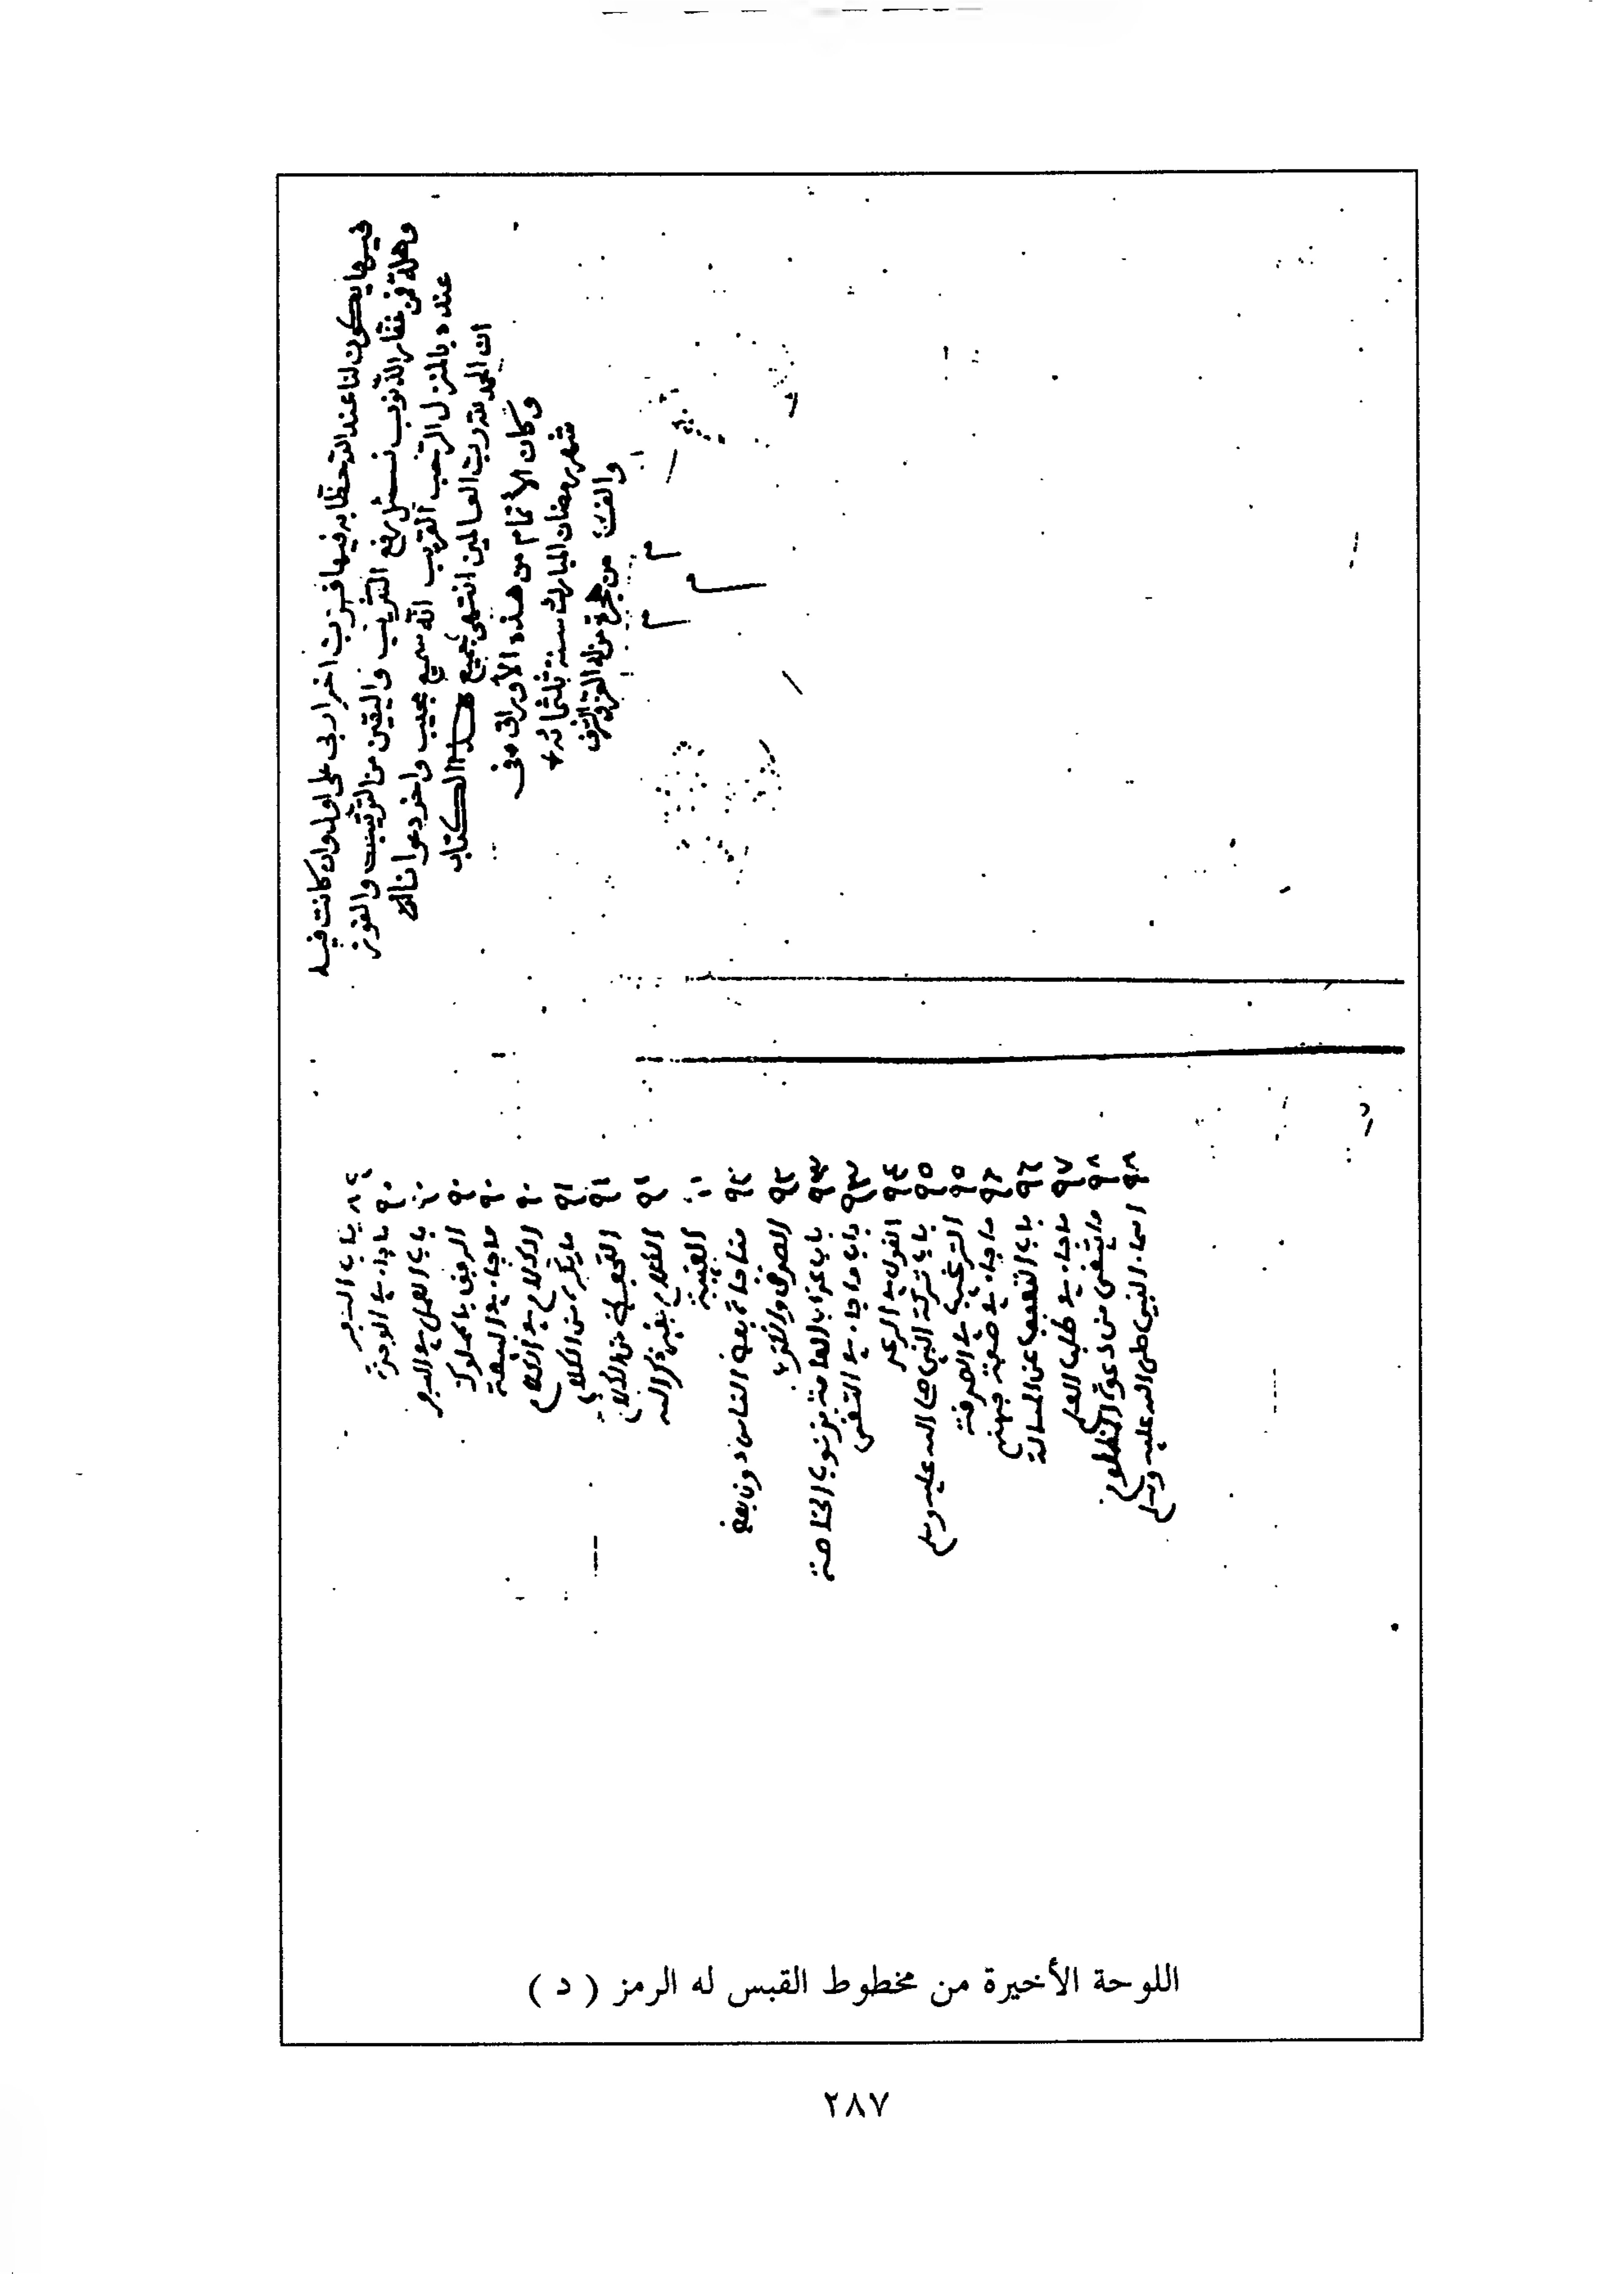 فيها يكون لنا عند الله حظا به فيها فهرب اخرا ربى على اوله وان كانت فيه
وهلة فمن غفار الذنوب نسئل رفع التثريب واليقين من التثبيت والفوز
عنده بالمنزل الرحب القريب انه سميع مجيب واخر دعوانا
ان الحمد لله رب العالمين انتهى جميع هذا الكتاب
وكان الأتمام من هذه الأوراق فى
شهر رمضان المبارك سنة ثلثمائة
والف من هجرة من له العز والشرف
م
م
٨٩ باب
٩٠ ماجاء في الوحدة
باب العمل في السفر
٩٠ الرفق بالمملوك
٩٠ ماجاء في البيعة
٩٠ الكلام في الكلام
٩١ ما يكره من الكلام
٩١ التحفظ من الكلام
٩١ الكلام بغير ذكر الله
الغيبة
٩٢ مناجاة بعض الناس دون بعض
٩٢ الصدق والكذب
٩٣ باب عذاب العامة بذنوب الخاصة
٩٣ باب ماجاء في التقى
٩٤ القول في الرعد
٩٥ باب تركة النبي صلى الله عليه وسلم
٩٥ الترغيب في الصدقة
٩٦ ماجاء في صفة جهنم
٩٦ باب التعفف عن المسالة
٩٧ ماجاء في طلب العلم
٩٨ ما يتقى من دعوة المظلوم
٩٨ اسماء النبي صلى الله عليه وسلم
اللوحة الأخيرة من مخطوط القبس له الرمز ( د )
٢٨٧